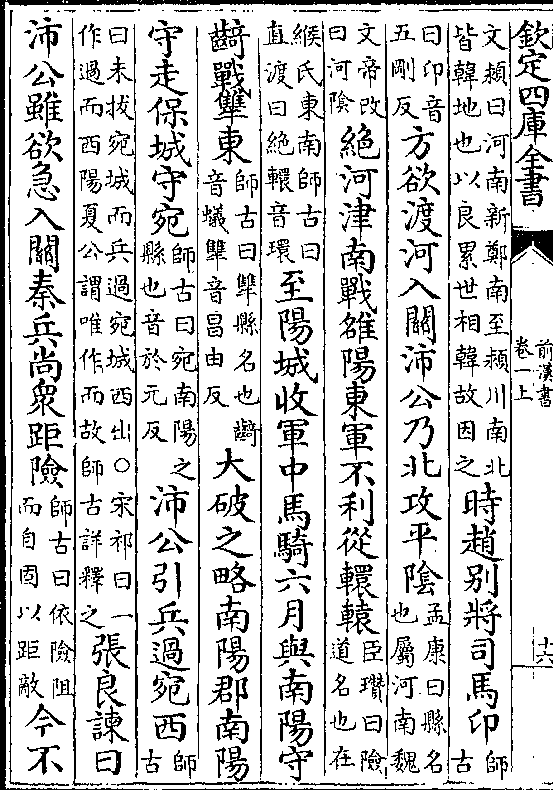 欽定四庫全書
前漢書
卷一上
十六
文頴曰河南新鄭南至頴川南北皆韓地也以良累世相韓故因之時趙别將司馬卬師古
曰卬音五剛反方欲渡河入關沛公乃北攻平陰孟康曰縣名也屬河南魏
文帝改曰河陰絶河津南戰雒陽東軍不利從轘轅臣瓚曰險道名也在
緱氏東南師古曰直渡曰絶轘音環至陽城收軍中馬騎六月與南陽守
齮戰犨東師古曰犨縣名也齮音蟻犨音昌由反大破之略南陽郡南陽
守走保城守宛師古曰宛南陽之縣也音於元反沛公引兵過宛西師古
曰未拔宛城而兵過宛城西出○宋祁曰一作過而西陽夏公謂唯作而故師古詳釋之張良諫曰
沛公雖欲急入關秦兵尚衆距險師古曰依險阻而自固以距敵今不